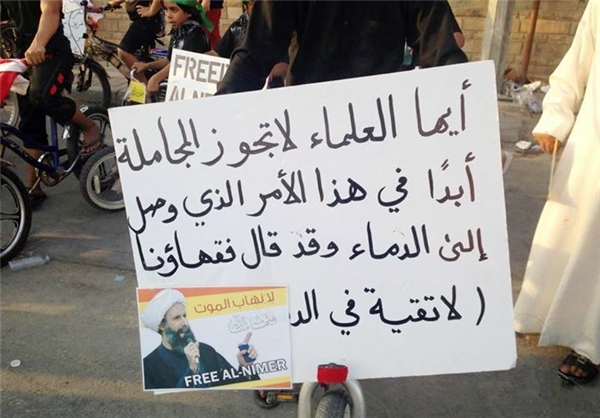 FREE
AL-NIM
أيها العلماء لا تجوز المجاملة
أبدًا في هذا الأمر الذي وصل
إلى الدماء وقد قال فقهاؤنا
( لا تقية في
لا نهاب الموت
FREE AL-NIMER